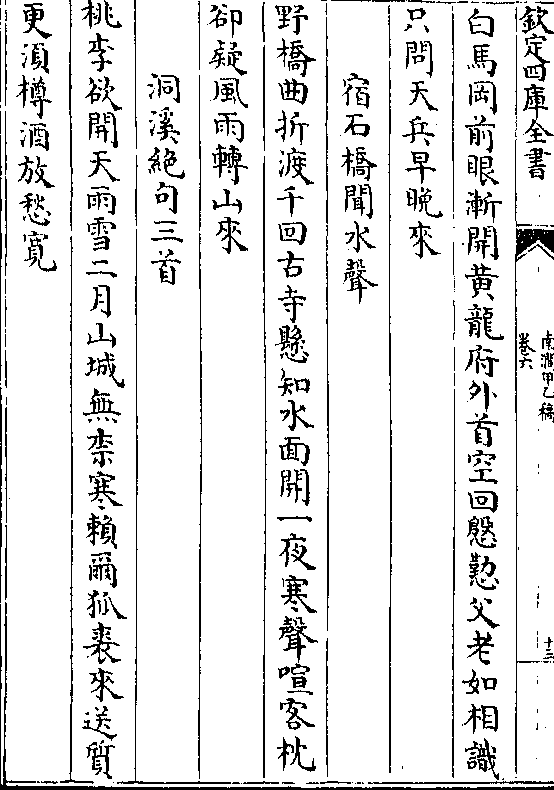 欽定四庫全書
南澗甲乙稿
卷六
十三
白馬岡前眼漸開黄龍府外首空回慇懃父老如相識
只問天兵早晚來
宿石橋聞水聲
野橋曲折渡千回古寺懸知水面開一夜寒聲喧客枕
卻疑風雨轉山來
洞溪絶句三首
桃李欲開天雨雪二月山城無柰寒賴爾狐裘來送質
更須樽酒放愁寛